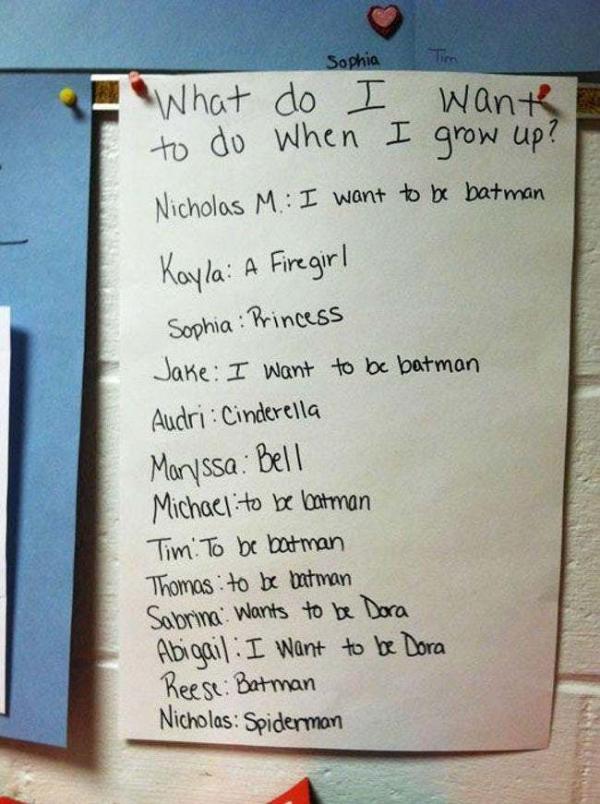 Sophia Tim
What do I want
to do when I grow up?
Nicholas M.: I want to be batman
Kayla: A Firegirl
Sophia: Princess
Jake: I want to be batman
Audri: Cinderella
Maryssa: Bell
Michael: to be batman
Tim: To be batman
Thomas: to be batman
Sabrina: Wants to be Dora
Abigail: I want to be Dora
Reese: Batman
Nicholas: Spiderman